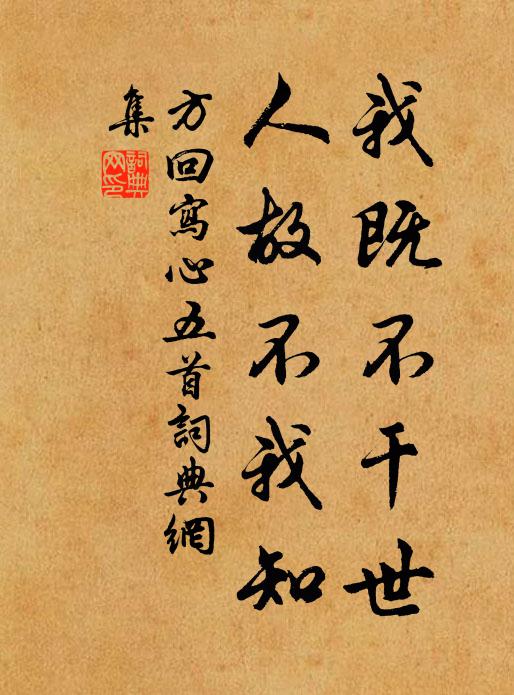 我既不干世
人故不我知
方回寫心五首詞典網
集
詞典
网印